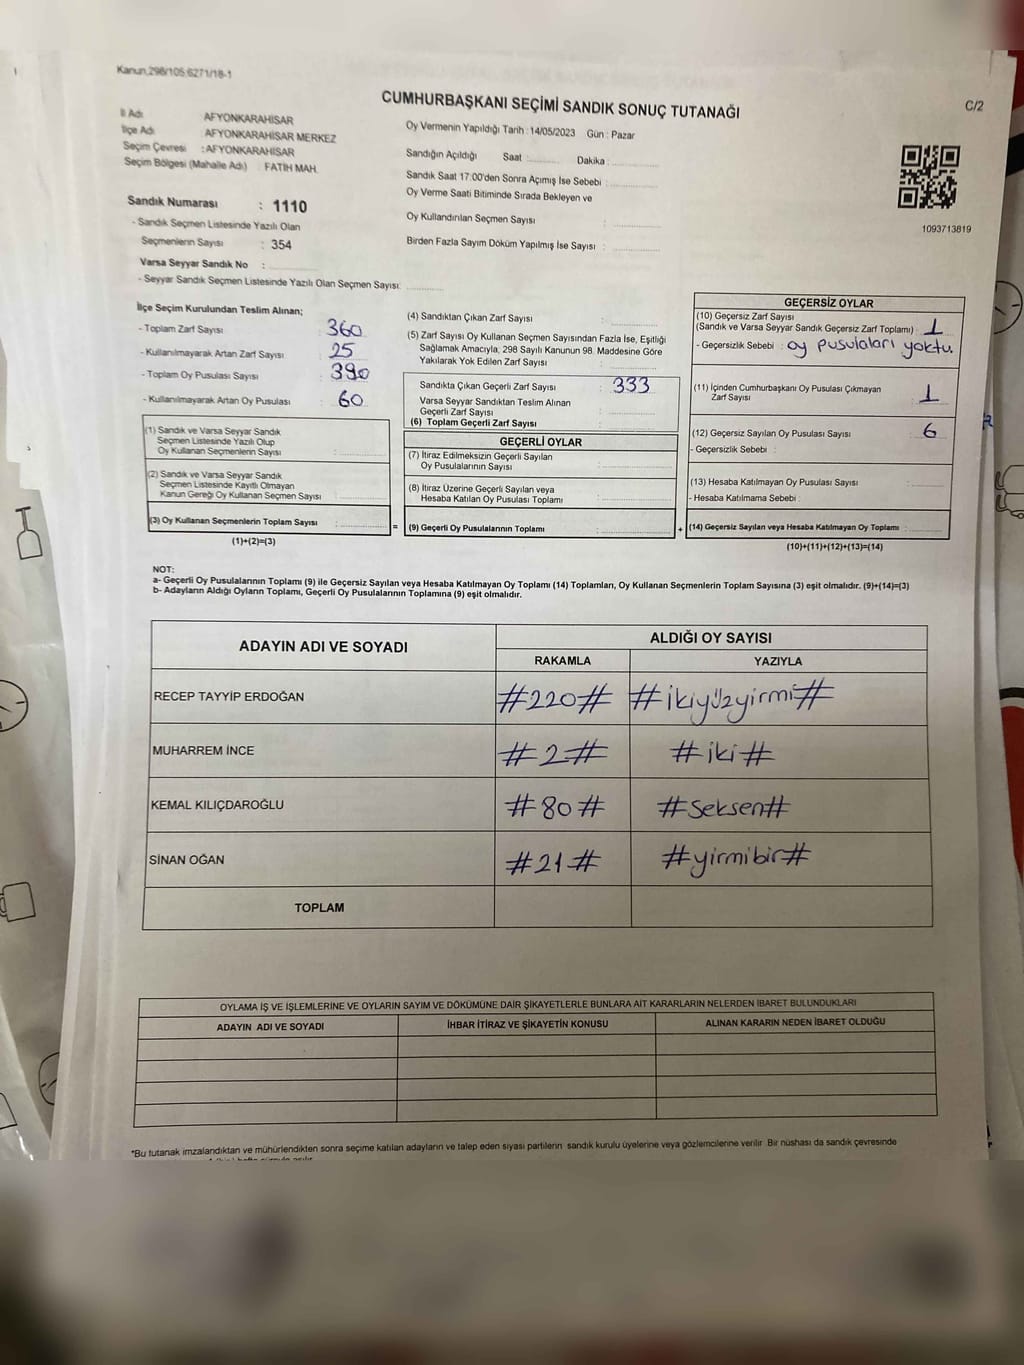 Kanun,298/105:6271/18-1
C/2
CUMHURBAŞKANI SEÇİMİ SANDIK SONUÇ TUTANAĞI
İl Adı AFYONKARAHİSAR
İlçe Adı AFYONKARAHİSAR MERKEZ
Seçim Çevresi :AFYONKARAHİSAR
Seçim Bölgesi (Mahalle Adı) FATİH MAH.
Sandık Numarası : 1110
- Sandık Seçmen Listesinde Yazılı Olan
Seçmenlerin Sayısı : 354
Varsa Seyyar Sandık No :
- Seyyar Sandık Seçmen Listesinde Yazılı Olan Seçmen Sayısı:
Oy Vermenin Yapıldığı Tarih :14/05/2023 Gün : Pazar
Sandığın Açıldığı Saat Dakika :
Sandık Saat 17:00'den Sonra Açımış İse Sebebi :
Oy Verme Saati Bitiminde Sırada Bekleyen ve
Oy Kullandırılan Seçmen Sayısı :
Birden Fazla Sayım Döküm Yapılmış İse Sayısı :
1093713819
İlçe Seçim Kurulundan Teslim Alınan;
- Toplam Zarf Sayısı : 360
- Kullanılmayarak Artan Zarf Sayısı : 25
- Toplam Oy Pusulası Sayısı : 390
- Kullanılmayarak Artan Oy Pusulası : 60
(1) Sandık ve Varsa Seyyar Sandık
Seçmen Listesinde Yazılı Olup
Oy Kullanan Seçmenlerin Sayısı :
(2) Sandık ve Varsa Seyyar Sandık
Seçmen Listesinde Kayıtlı Olmayan
Kanun Gereği Oy Kullanan Seçmen Sayısı :
(3) Oy Kullanan Seçmenlerin Toplam Sayısı :
(1)+(2)=(3)
=
(4) Sandıktan Çıkan Zarf Sayısı :
(5) Zarf Sayısı Oy Kullanan Seçmen Sayısından Fazla İse, Eşitliği
Sağlamak Amacıyla, 298 Sayılı Kanunun 98. Maddesine Göre
Yakılarak Yok Edilen Zarf Sayısı :
Sandıkta Çıkan Geçerli Zarf Sayısı : 333
Varsa Seyyar Sandıktan Teslim Alınan
Geçerli Zarf Sayısı :
(6) Toplam Geçerli Zarf Sayısı :
GEÇERLİ OYLAR
(7) İtiraz Edilmeksizin Geçerli Sayılan
Oy Pusulalarının Sayısı :
(8) İtiraz Üzerine Geçerli Sayılan veya
Hesaba Katılan Oy Pusulası Toplamı :
(9) Geçerli Oy Pusulalarının Toplamı :
+
GEÇERSİZ OYLAR
(10) Geçersiz Zarf Sayısı
(Sandık ve Varsa Seyyar Sandık Geçersiz Zarf Toplamı) : 1
- Geçersizlik Sebebi : oy pusulaları yoktu.
(11) İçinden Cumhurbaşkanı Oy Pusulası Çıkmayan
Zarf Sayısı : 1
(12) Geçersiz Sayılan Oy Pusulası Sayısı : 6
- Geçersizlik Sebebi :
(13) Hesaba Katılmayan Oy Pusulası Sayısı :
- Hesaba Katılmama Sebebi :
(14) Geçersiz Sayılan veya Hesaba Katılmayan Oy Toplamı :
(10)+(11)+(12)+(13)=(14)
NOT:
a- Geçerli Oy Pusulalarının Toplamı (9) ile Geçersiz Sayılan veya Hesaba Katılmayan Oy Toplamı (14) Toplamları, Oy Kullanan Seçmenlerin Toplam Sayısına (3) eşit olmalıdır. (9)+(14)=(3)
b- Adayların Aldığı Oyların Toplamı, Geçerli Oy Pusulalarının Toplamına (9) eşit olmalıdır.
ADAYIN ADI VE SOYADI ALDIĞI OY SAYISI
RAKAMLA YAZIYLA
RECEP TAYYİP ERDOĞAN #220# #ikiyüzyirmi#
MUHARREM İNCE #2# #iki#
KEMAL KILIÇDAROĞLU #80# #Seksen#
SİNAN OĞAN #21# #yirmibir#
TOPLAM
OYLAMA İŞ VE İŞLEMLERİNE VE OYLARIN SAYIM VE DÖKÜMÜNE DAİR ŞİKAYETLERLE BUNLARA AİT KARARLARIN NELERDEN İBARET BULUNDUKLARI
ADAYIN ADI VE SOYADI İHBAR İTİRAZ VE ŞİKAYETİN KONUSU ALINAN KARARIN NEDEN İBARET OLDUĞU
*Bu tutanak imzalandıktan ve mühürlendikten sonra seçime katılan adayların ve talep eden siyasi partilerin sandık kurulu üyelerine veya gözlemcilerine verilir Bir nüshası da sandık çevresinde